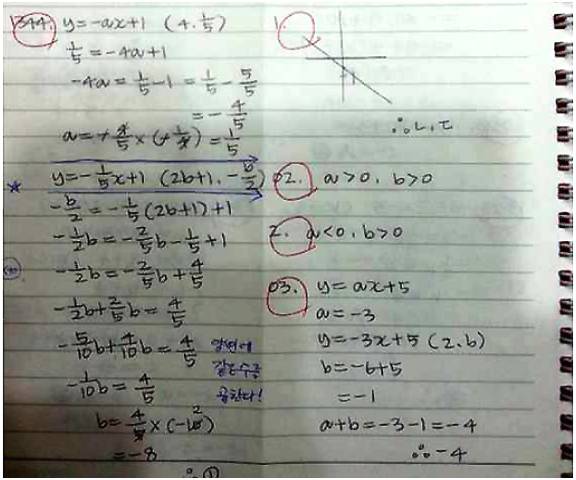 1344. y=-ax+1 (4, 1/5)
1/5=-4a+1
-4a=1/5-1=1/5-5/5
=-4/5
a=-4/5×(-1/4)=1/5
* y=-1/5x+1 (2b+1, -b/2)
-b/2=-1/5(2b+1)+1
-1/2b=-2/5b-1/5+1
-1/2b=-2/5b+4/5
-1/2b+2/5b=4/5
-5/10b+4/10b=4/5 양변에
같은수를
-1/10b=4/5 곱한다!
b=4/5×(-10) 2
=-8
∴①
1.
-1
∴ㄴ,ㄷ
02. a>0, b>0
2. a<0, b>0
03. y=ax+5
a=-3
y=-3x+5 (2,b)
b=-6+5
=-1
a+b=-3-1=-4
∴-4